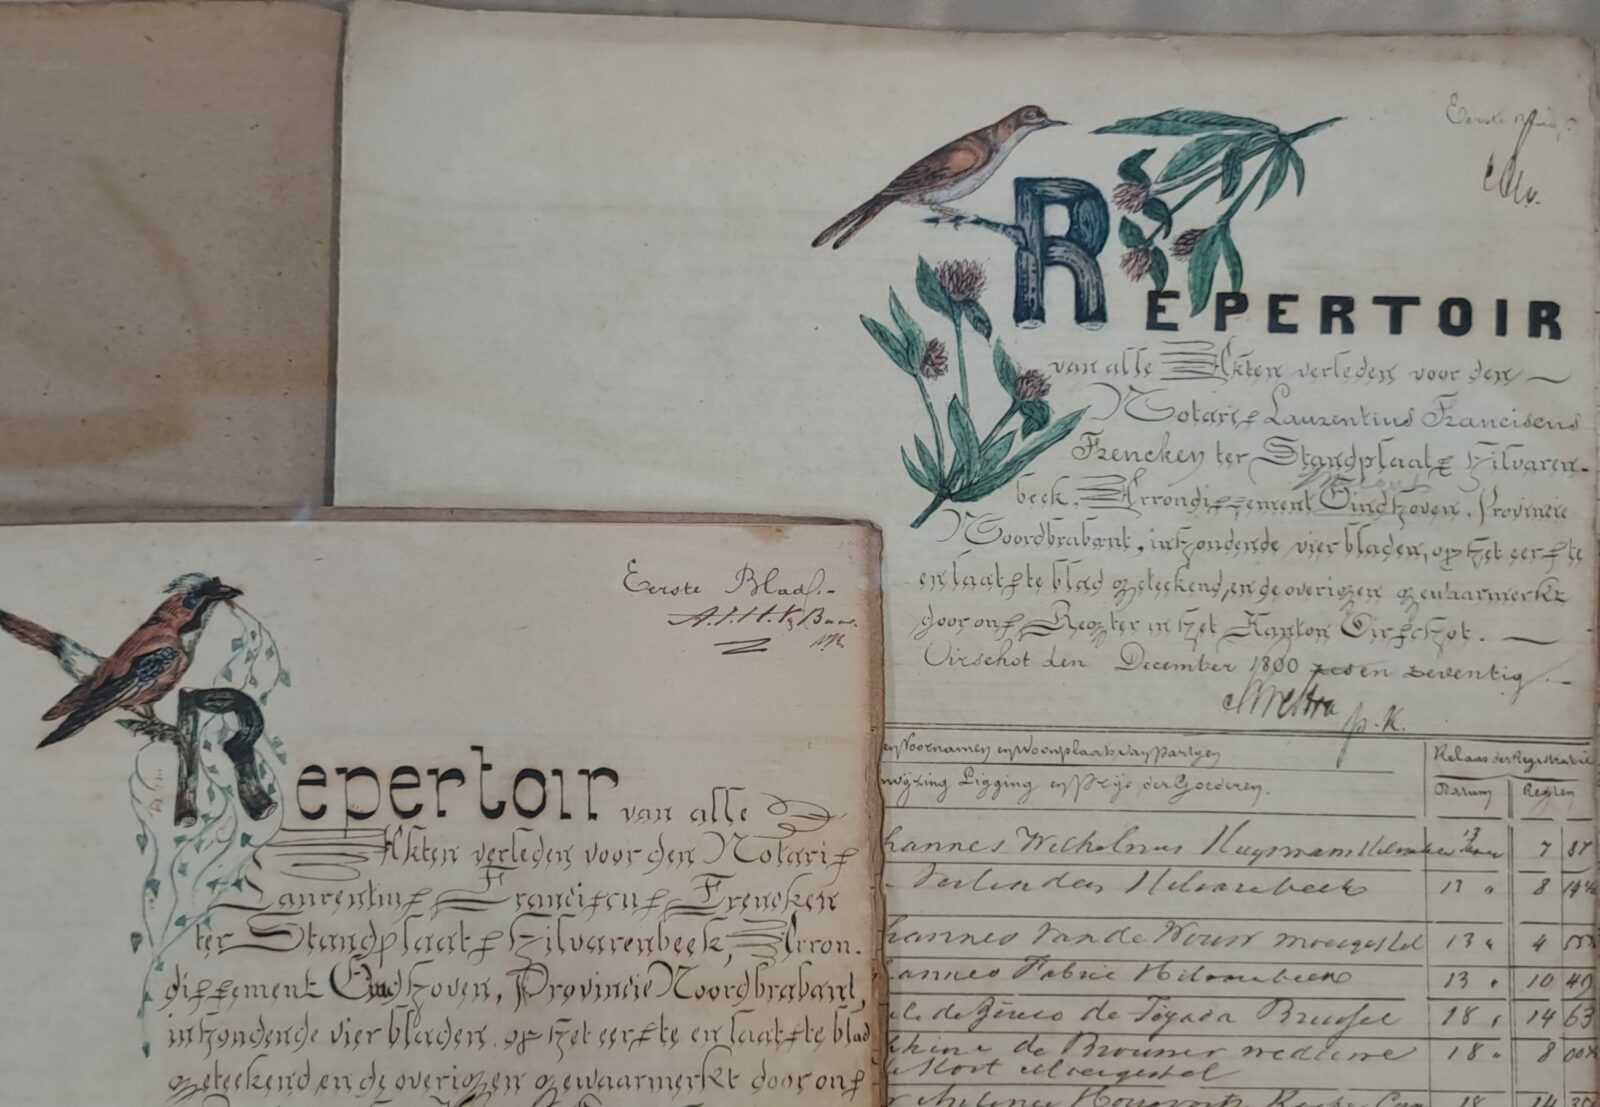 Eerste
REPERTOIR
van alle Akten verleden voor den
Notaris Laurentius Franciscus
Frencken ter Standplaats Hilvaren-
beek, Arrondissement Eindhoven, Provincie
Noordbrabant, inhoudende vier bladen, op het eerste
en laatste blad geteekend, en de overigen gewaarmerkt
door ons Regter in het Kanton Oirschot.
Oirschot den December 1800 zes en zeventig.
p. K.
en Voornamen en Woonplaats van Partyen
Relaas der Registratie
wijzing Ligging en Prijs der Goederen.
Datum Regten
hannes Wilhelmus Huysmans 13 7 87
Hilvarenbeek 13 " 8
hannes van de Wouw Moergestel 13 " 4
annes Fabrie Hilvarenbeek 13 " 10 49
de Togada Brussel 18 " 14 63
de Brouwer weduwe 18 " 8
Moergestel
18 14
Eerste Blad.-
Repertoir van alle
Akten verleden voor den Notaris
Laurentius Franciscus Frencken
ter Standplaats Hilvarenbeek, Arron-
dissement Eindhoven, Provincie Noordbrabant,
inhoudende vier bladen, op het eerste en laatste blad
geteekend en de overigen gewaarmerkt door ons